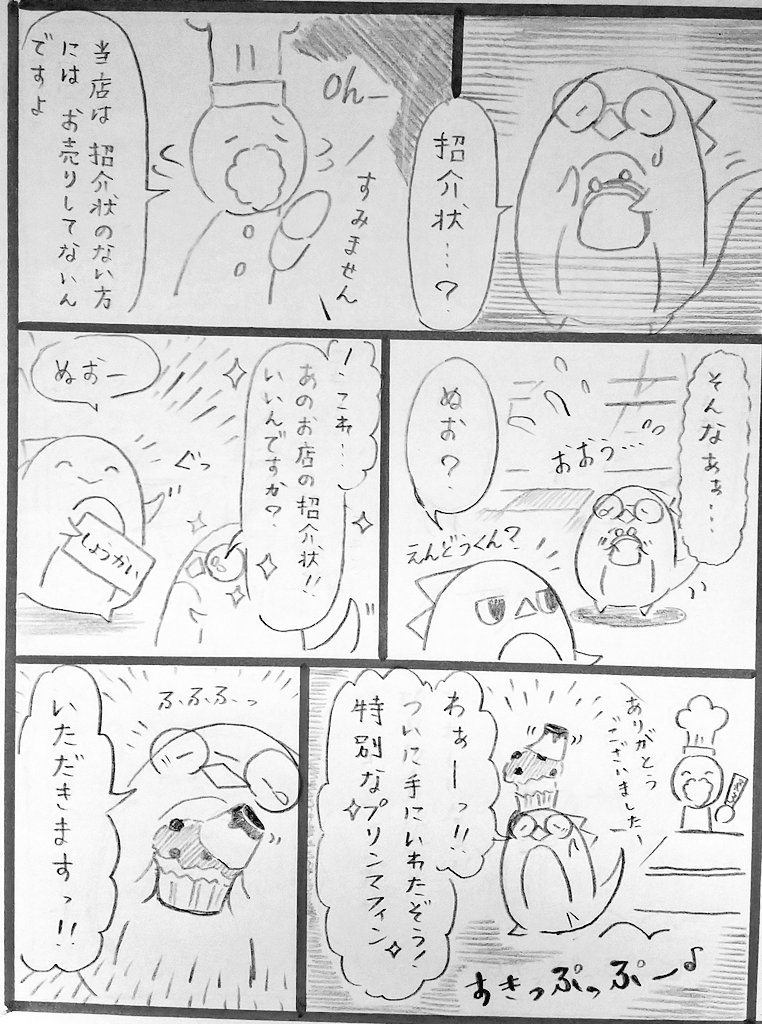 紹介状…?
Oh—
すみません
当店は 紹介状のない方
には お売りしてないん
ですよ
そんなあぁ…
おおう…
ぬお?
えんどうくん?
これ…
あのお店の紹介状!!
いいんですか?
ぐっ
ぬおー
しょうかい
ありがとう
ございました、
わぁーっ!!
ついに手にいれたぞう!
特別なプリンマフィン
すきっぷっぷー♪
ふふふーっ
いただきますっ!!